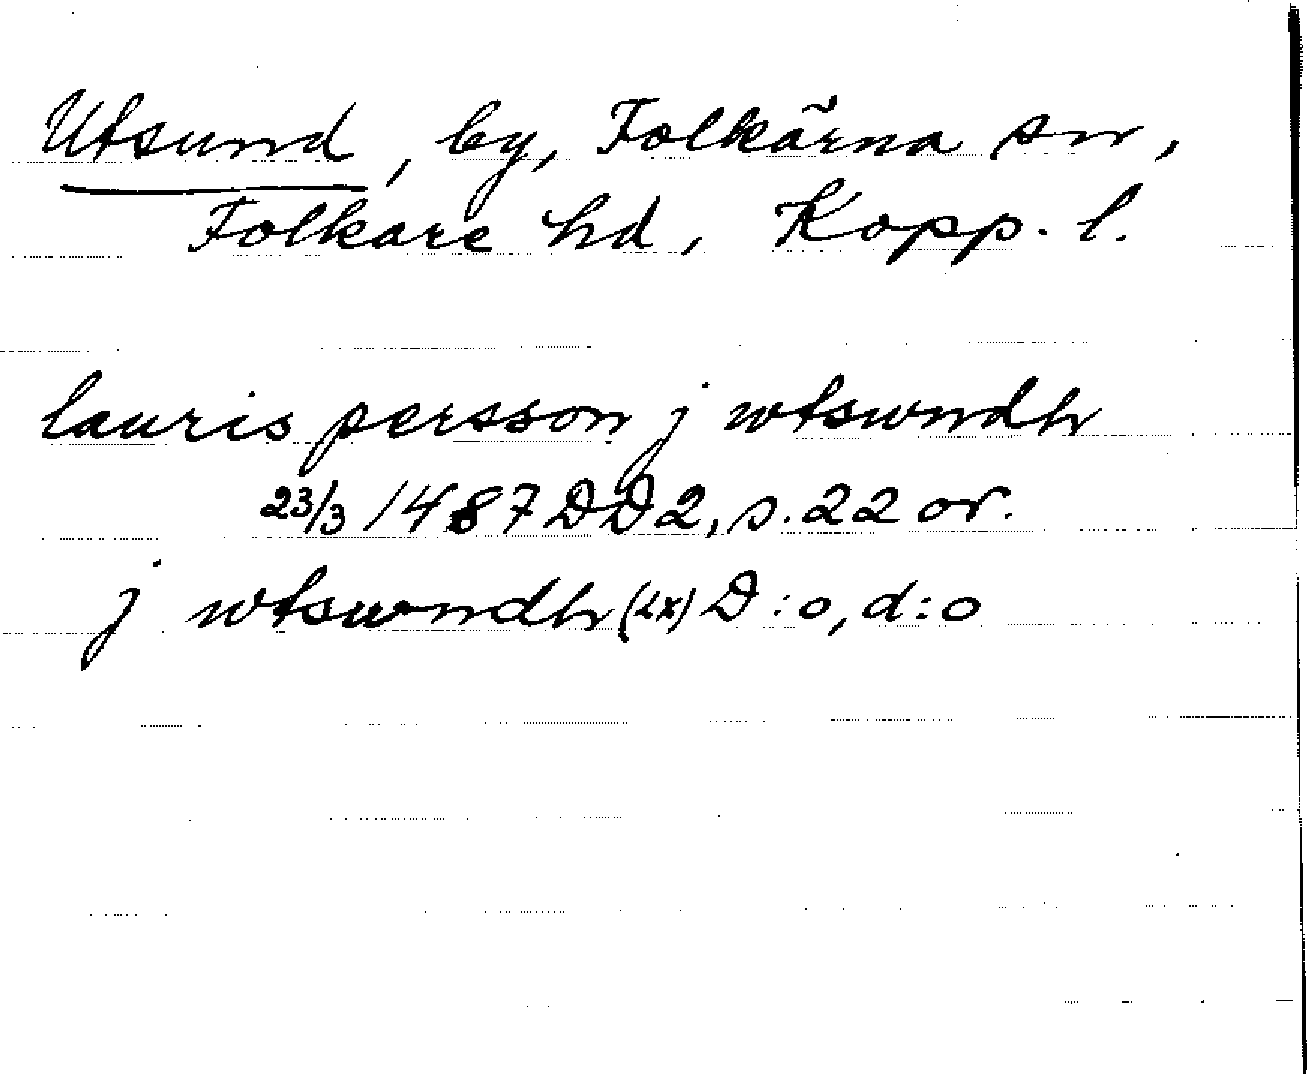 Utsund, by, Folkärna sn,
Folkare hd, Kopp. l.
lauris persson j wtswndh
23/3 1487 DD2, s. 22 or.
j wtswndh (2x) D:o, d:o